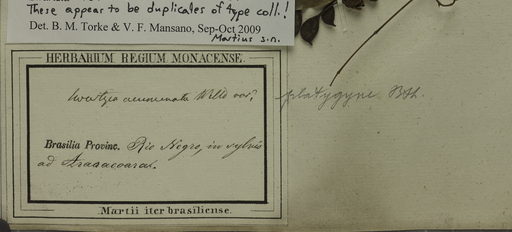 These appear to be duplicates of type coll.!
Det. B. M. Torke & V. F. Mansano, Sep-Oct 2009
Martius s.n.
HERBARIUM REGIUM MONACENSE.
Swartzia acuminata Willd var? platygyne Bth.
Brasilia Provinc. Rio Negro, in sylvis
ad Araracoara.
Martii iter brasiliense.